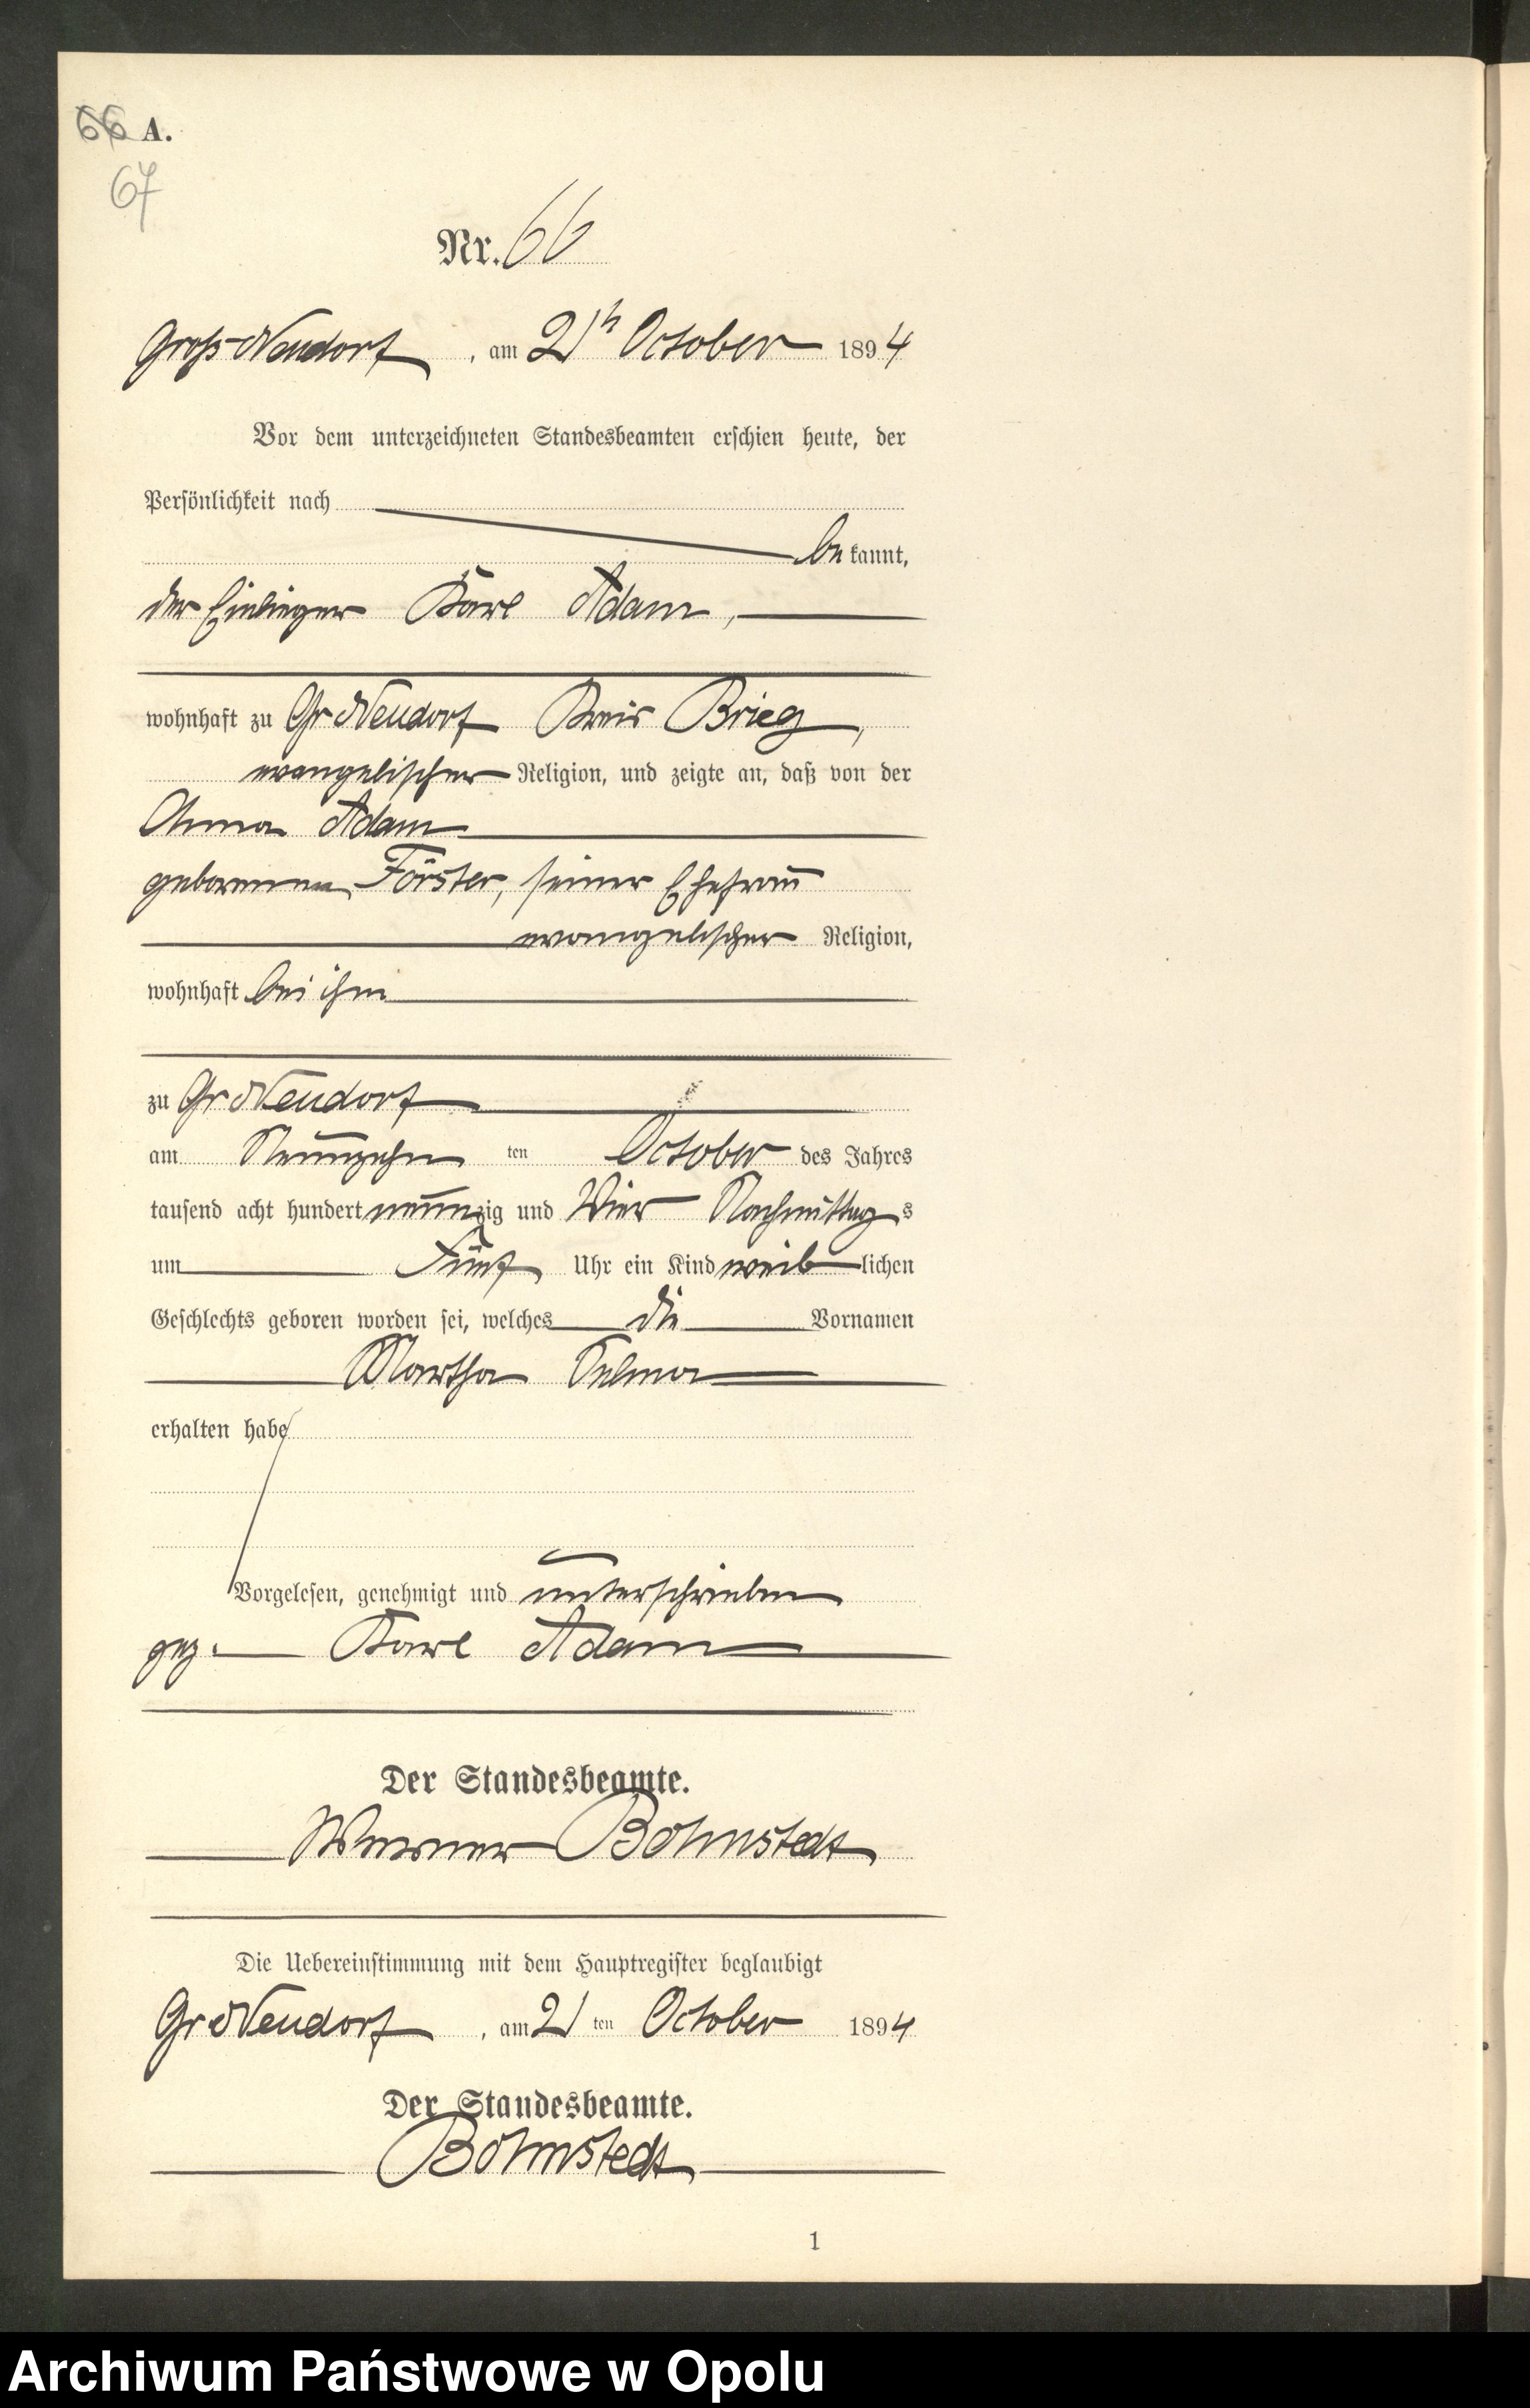 66 A.
67
Nr. 66
Groß-Neudorf, am 21n October 1894
Vor dem unterzeichneten Standesbeamten erschien heute, der
Persönlichkeit nach
bekannt,
der Einlieger Karl Adam,
wohnhaft zu Gr Neudorf Kreis Brieg,
evangelischer Religion, und zeigte an, daß von der
Anna Adam
geborenen Förster, seiner Ehefrau
evangelischer Religion,
wohnhaft bei ihm
zu Gr Neudorf
am Neunzehn ten October des Jahres
tausend acht hundert neunzig und Vier Nachmittags
um Fünf Uhr ein Kind weiblichen
Geschlechts geboren worden sei, welches die Vornamen
Martha Selma
erhalten habe
Vorgelesen, genehmigt und unterschrieben
gez. Karl Adam
Der Standesbeamte.
Werner Bohmstedt
Die Uebereinstimmung mit dem Hauptregister beglaubigt
Gr Neudorf, am 21 ten October 1894
Der Standesbeamte.
Bohmstedt
1
Archiwum Państwowe w Opolu